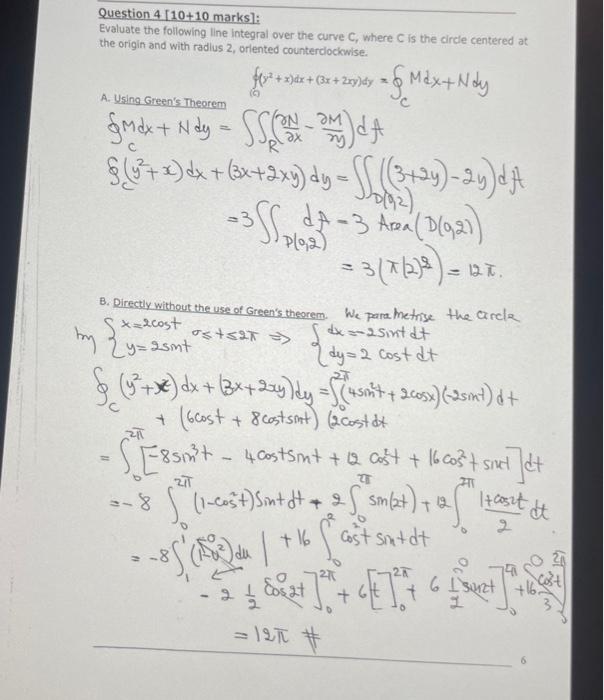 Question 4 [10+10 marks]:
Evaluate the following line integral over the curve C, where C is the circle centered at
the origin and with radius 2, oriented counterclockwise.
∮(C) (y² + x)dx + (3x + 2xy)dy = ∮C Mdx + Ndy
A. Using Green's Theorem
∮C Mdx + Ndy = ∬R (∂N/∂x - ∂M/∂y) dA
∮C (y² + x) dx + (3x + 2xy) dy = ∬D(0,2) ((3+2y) - 2y) dA
= 3 ∬D(0,2) dA = 3 Area (D(0,2))
= 3 (π(2)²) = 12π.
B. Directly without the use of Green's theorem. We parametrise the circle
by { x = 2cost, y = 2sint 0 ≤ t ≤ 2π ⇒ { dx = -2sint dt, dy = 2 cost dt
∮C (y² + x) dx + (3x + 2xy) dy = ∫₀^2π (4sin²t + 2cosx)(-2sint) dt
+ (6cost + 8costsint) (2cost dt
= ∫₀^2π [-8sin³t - 4costsint + 12 cos²t + 16cos²t sint] dt
= -8 ∫₀^2π (1-cos²t) sint dt - 2 ∫₀^2π sin(2t) + 12 ∫₀^2π (1+cos2t)/2 dt
+ 16 ∫₀^2 cos²t sint dt
= -8 ∫₁^1 (1-u²) du |
- 2 1/2 cos2t ]₀^2π + 6 [t]₀^2π + 6 1/2 sin2t ]₀^2π + 16 cos³t/3
= 12π #
6